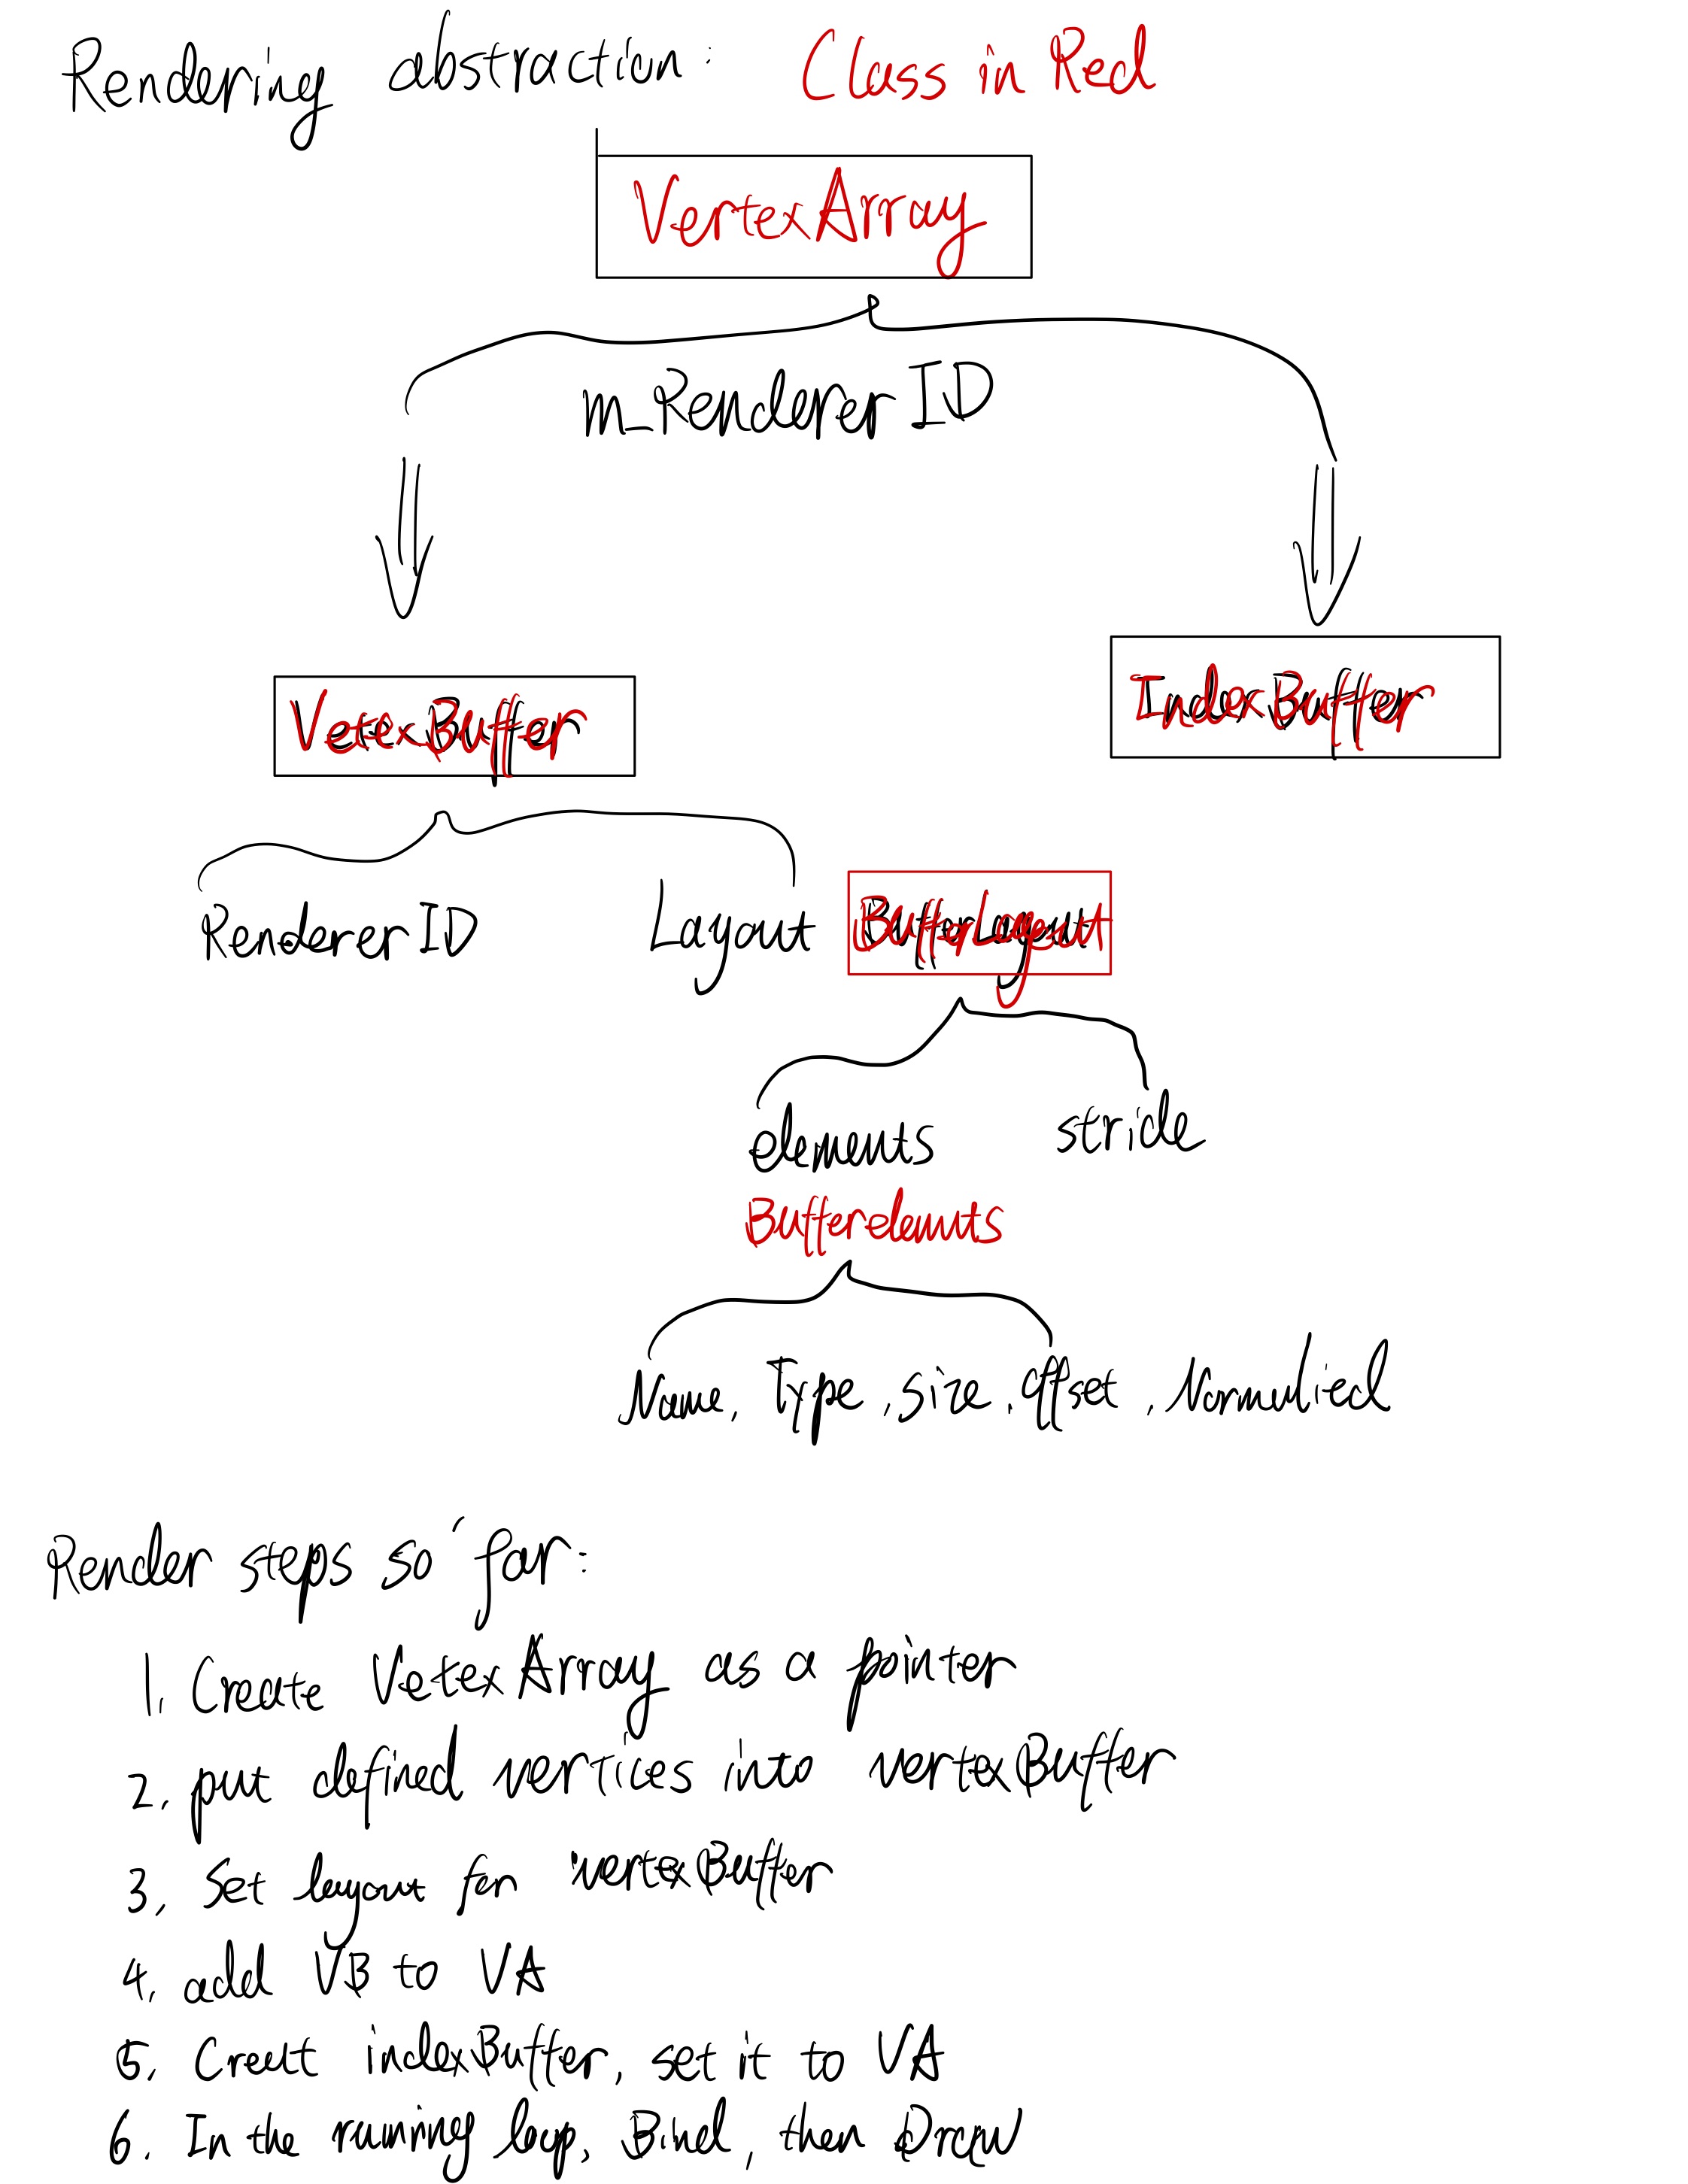 Rendering abstraction: Class in Red
VertexArray
m_RendererID
VetexBuffer
IndexBuffer
RendererID
Layout
BufferLayout
elements
stride
Bufferelemnts
Name, Type, size, offset, Normulied
Render steps so far:
1. Create VetexArray as a pointer
2. put defined vertices into vertexBuffer
3. Set layout for vertexBuffer
4. add VB to VA
5. Creatt indexBuffer, set it to VA
6. In the running loop, Bind, then Draw